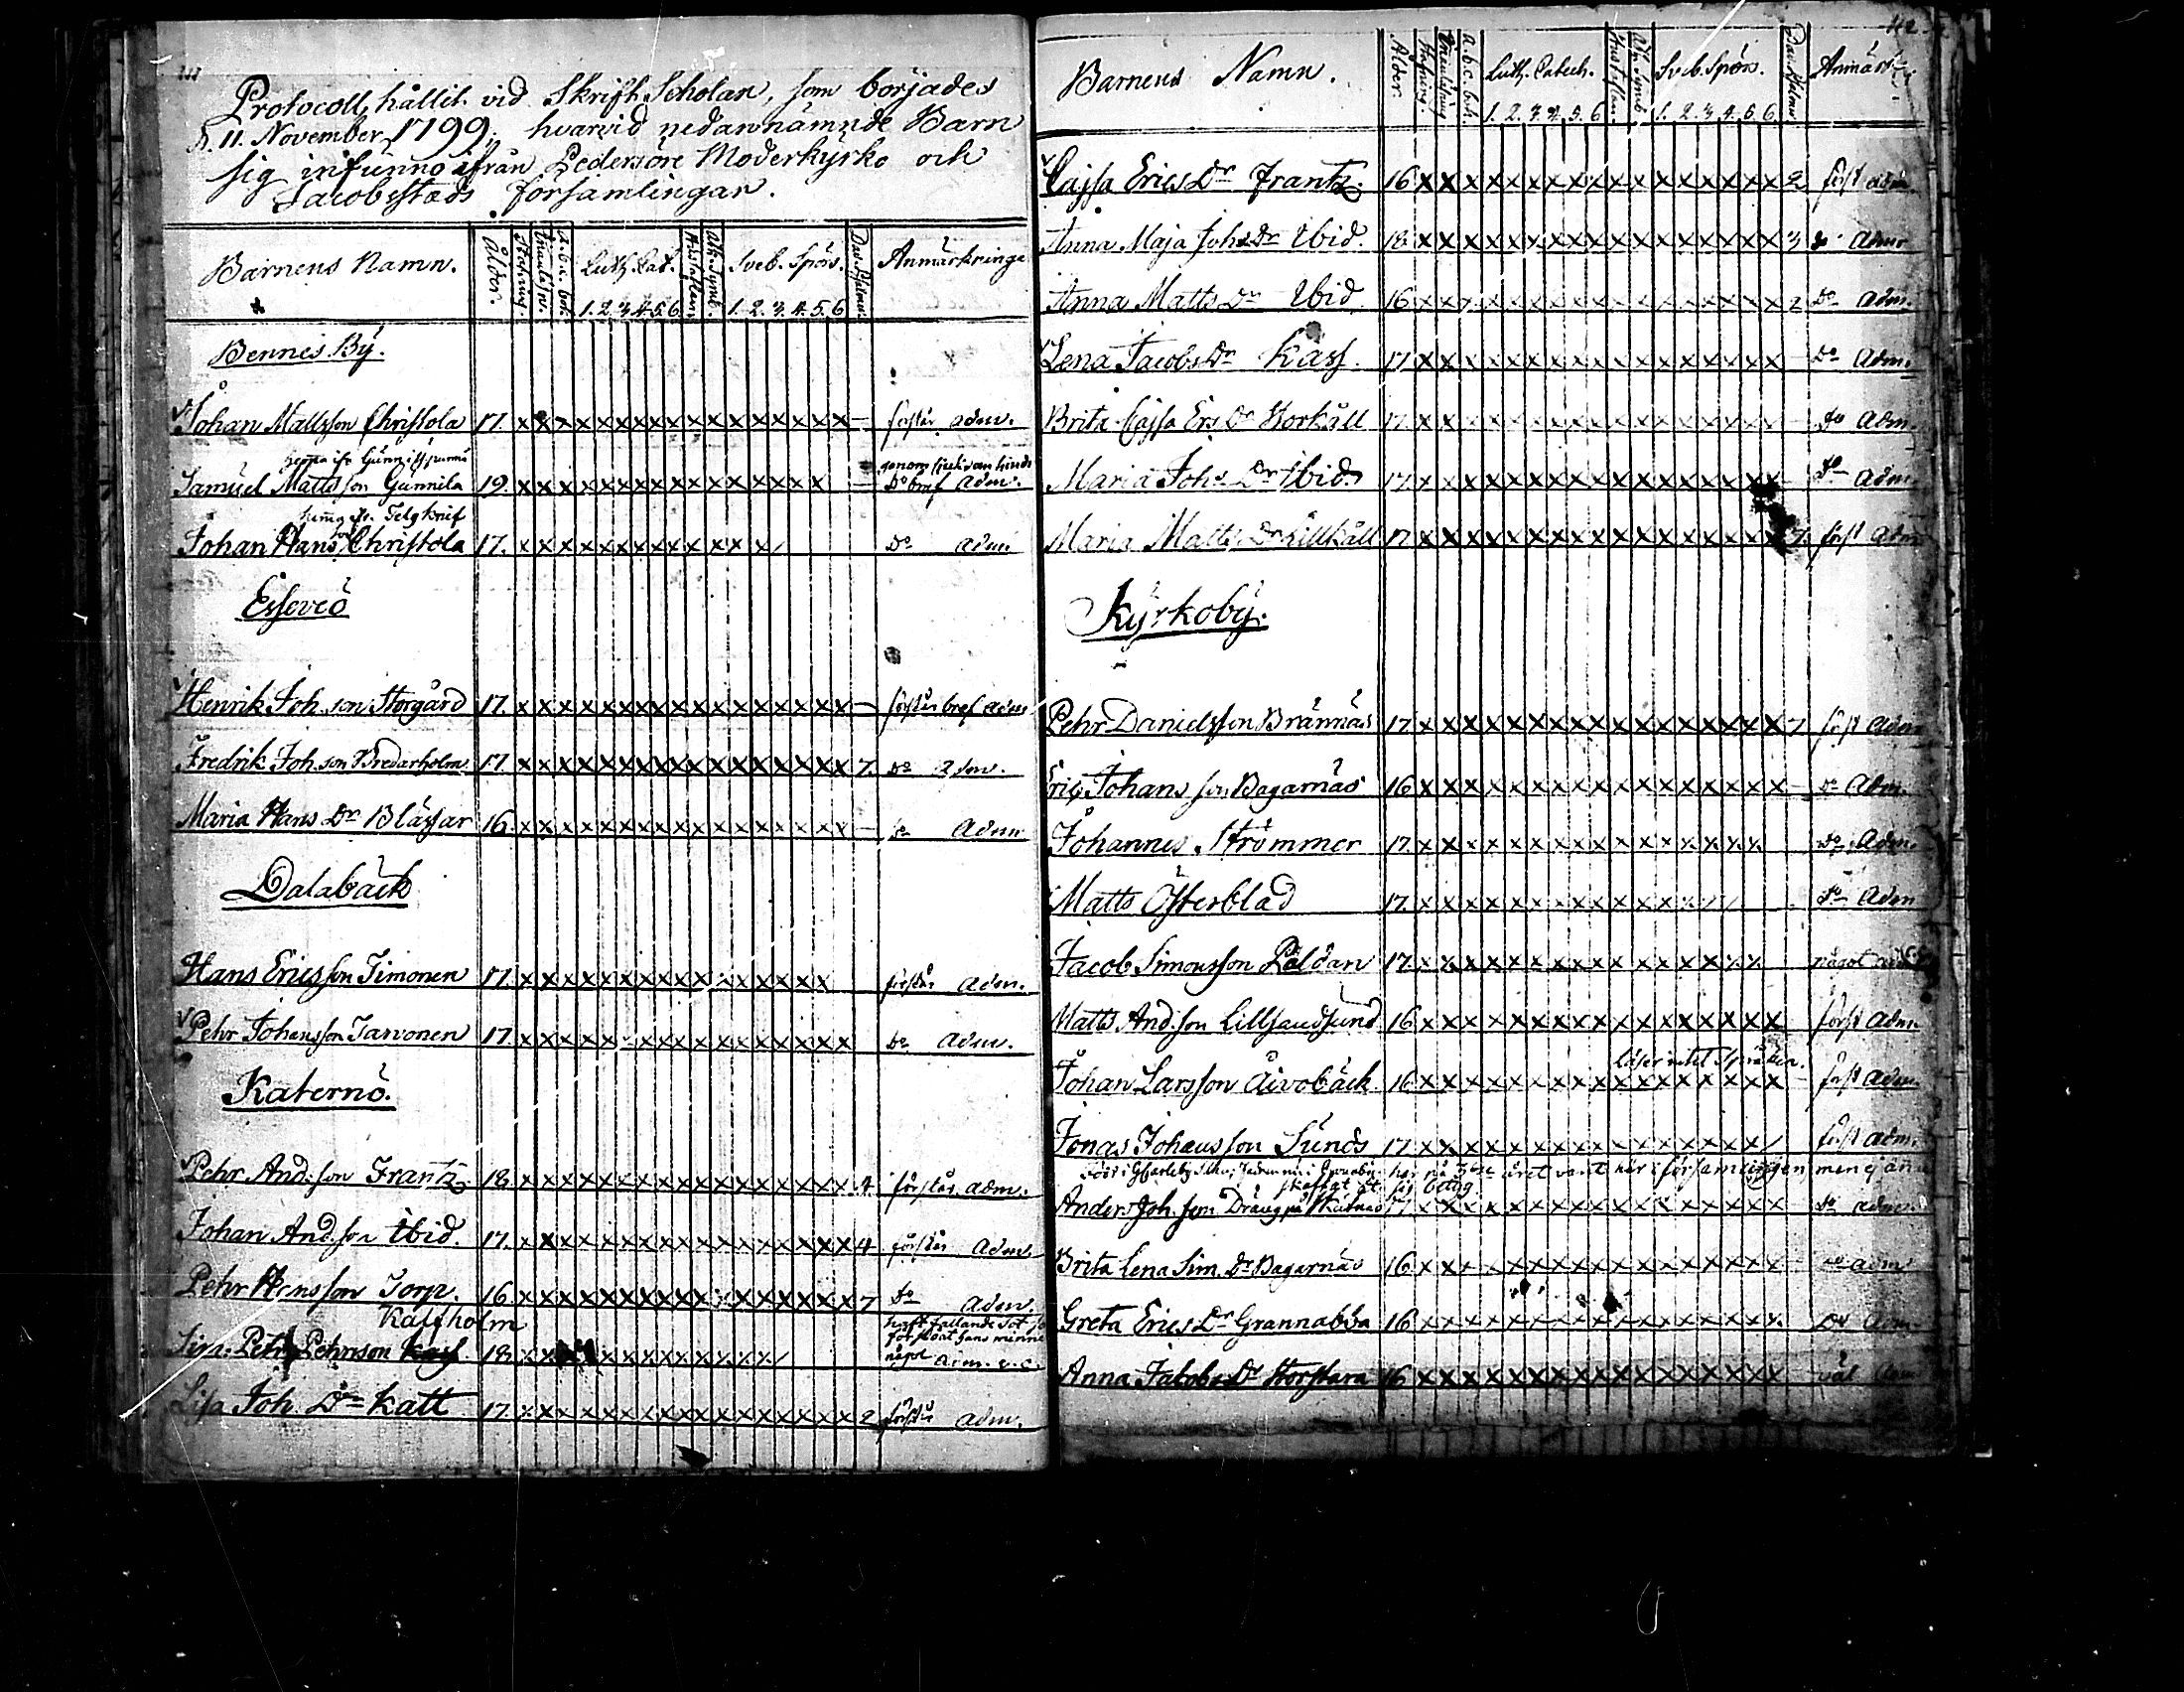 Protocoll, hållit vid Skrift Scholan, som börjades
d. 11. November 1799; hvarvid nedannämnde Barn
sig infunno ifrån Pedersöre Moderkyrko och
Jacobsstads församlingar.
Barnens Namn. Ålder. Stafning. a.b.c. bok Luth. Cat. Hustaflan Ath. Symb. Sveb. Spörs. Dav. Psalmer Anmärkninga
1. 2. 3. 4. 5. 6. 1. 2. 3. 4. 5. 6.
Bennes By.
Johan Mattsson Christola 17. x x x x x x x x x x x x x x x x — förstår adm.
Samuel Mattsson Gunnila 19. x x x x x x x x x x x x x x x — Do adm.
Johan Hansson Christola 17. x x x x x x x x x x x x Do adm.
Esseveö
Henrik Joh. son Storgård 17. x x x x x x x x x x x x x x x x — förstår adm
Fredrik Joh. son Bredarholm 17 x x x x x x x x x x x x x x x x 7. Do adm.
Maria Hans Dr Blässar 16. x x x x x x x x x x x x x x x x — Do Adm
Dalabäck
Hans Ericsson Timonen 17. x x x x x x x x x x x x x x x förstår adm.
Pehr Johansson Tarvonen 17. x x x x x x x x x x x x x x x x Do adm.
Katernö.
Pehr And. son Frantz 18 x x x x x x x x x x x x x x x x 4 förstår. adm.
Johan And. son ibid. 17. x x x x x x x x x x x x x x x x 4 förstår adm
Pehr Hansson Torp. 16 x x x x x x x x x x x x x x x x 7 Do adm.
Kassholm
haft fallande sot
Pehrsson 18. x x x x x x x x x x adm.
Lisa Joh. Dr Katt 17. x x x x x x x x x x x x x x x x 2 förstår adm.
Barnens Namn. Ålder. Stafning. a.b.c. bok Luth. Catech. Hustaflan Ath. Symb. Sveb. Spörs. Anmärk
1. 2. 3. 4. 5. 6 1. 2. 3. 4. 5. 6.
Cajsa Erics Dr Frantz. 16 x x x x x x x x x x x x x x x x 2 först adm
Anna Maja Johs Dr Ibid. 18 x x x x x x x x x x x x x x x x 3 Do Adm
Anna Matts Dr Ibid. 16 x x x x x x x x x x x x x x x x 2 Do adm.
Lena Jacobs Dr Kass. 17 x x x x x x x x x x x x x x x x — Do Adm.
Brita Cajsa Ers Dr Storkåll 17. x x x x x x x x x x x x x x x x — Do Adm.
Maria Johs Dr Ibid. 17. x x x x x x x x x x x x x x x x — Do adm
Maria Matts Dr Lillkåll 17 x x x x x x x x x x x x x x x x 7. först Adm
Kyrkoby.
Pehr Danielsson Brännäs 17. x x x x x x x x x x x x x x x x 7 först adm
Eric Johans son Bagarnäs 16 x x x x x x x x x x x x x x x x — Do Adm.
Johannes Strömmer 17. x x x x x x x x x x x x x x x Do Adm.
Matts Österblad 17. x x x x x x x x x x x x Do Adm
Jacob Simonsson Påldan 17. x x x x x x x x x x x x x x x något
Matts And. son Lillsandsund 16 x x x x x x x x x x x x x x x x först adm
Johan Larsson Åivobäck 16 x x x x x x x x x x x x x x x x — först adm.
Jonas Johansson Sunds 17. x x x x x x x x x x x x x x x först adm.
året varit här i församlingen, men ej
betyg
Anders Joh. son Dräng på x x x x x x x x x x x x x x x x Do adm.
Brita Lena Sim. Dr Bagarnäs 16. x x x x x x x x x x x x x x x x — Do adm
Greta Erics Dr Grannabba 16 x x x x x x x x x x x x x x x x Do Adm.
Anna Jakobs Dr Storstara 16 x x x x x x x x x x x x x x x x väl Adm